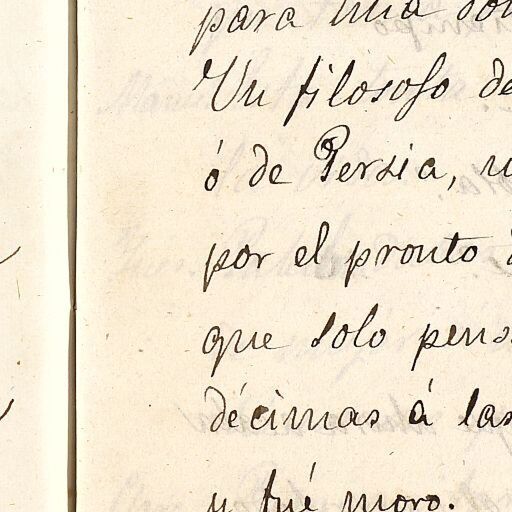 para una
Un filosofo de
ó de Persia,
por el pronto
que solo pens
décimas á las
y fué moro.